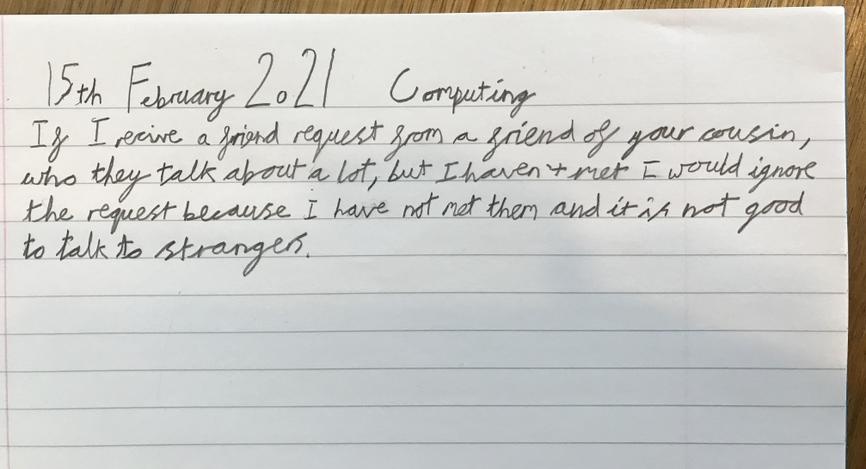 15th February 2021 Computing
If I recive a friend request from a friend of your cousin,
who they talk about a lot, but I haven't met I would ignore
the request because I have not met them and it is not good
to talk to strangers.